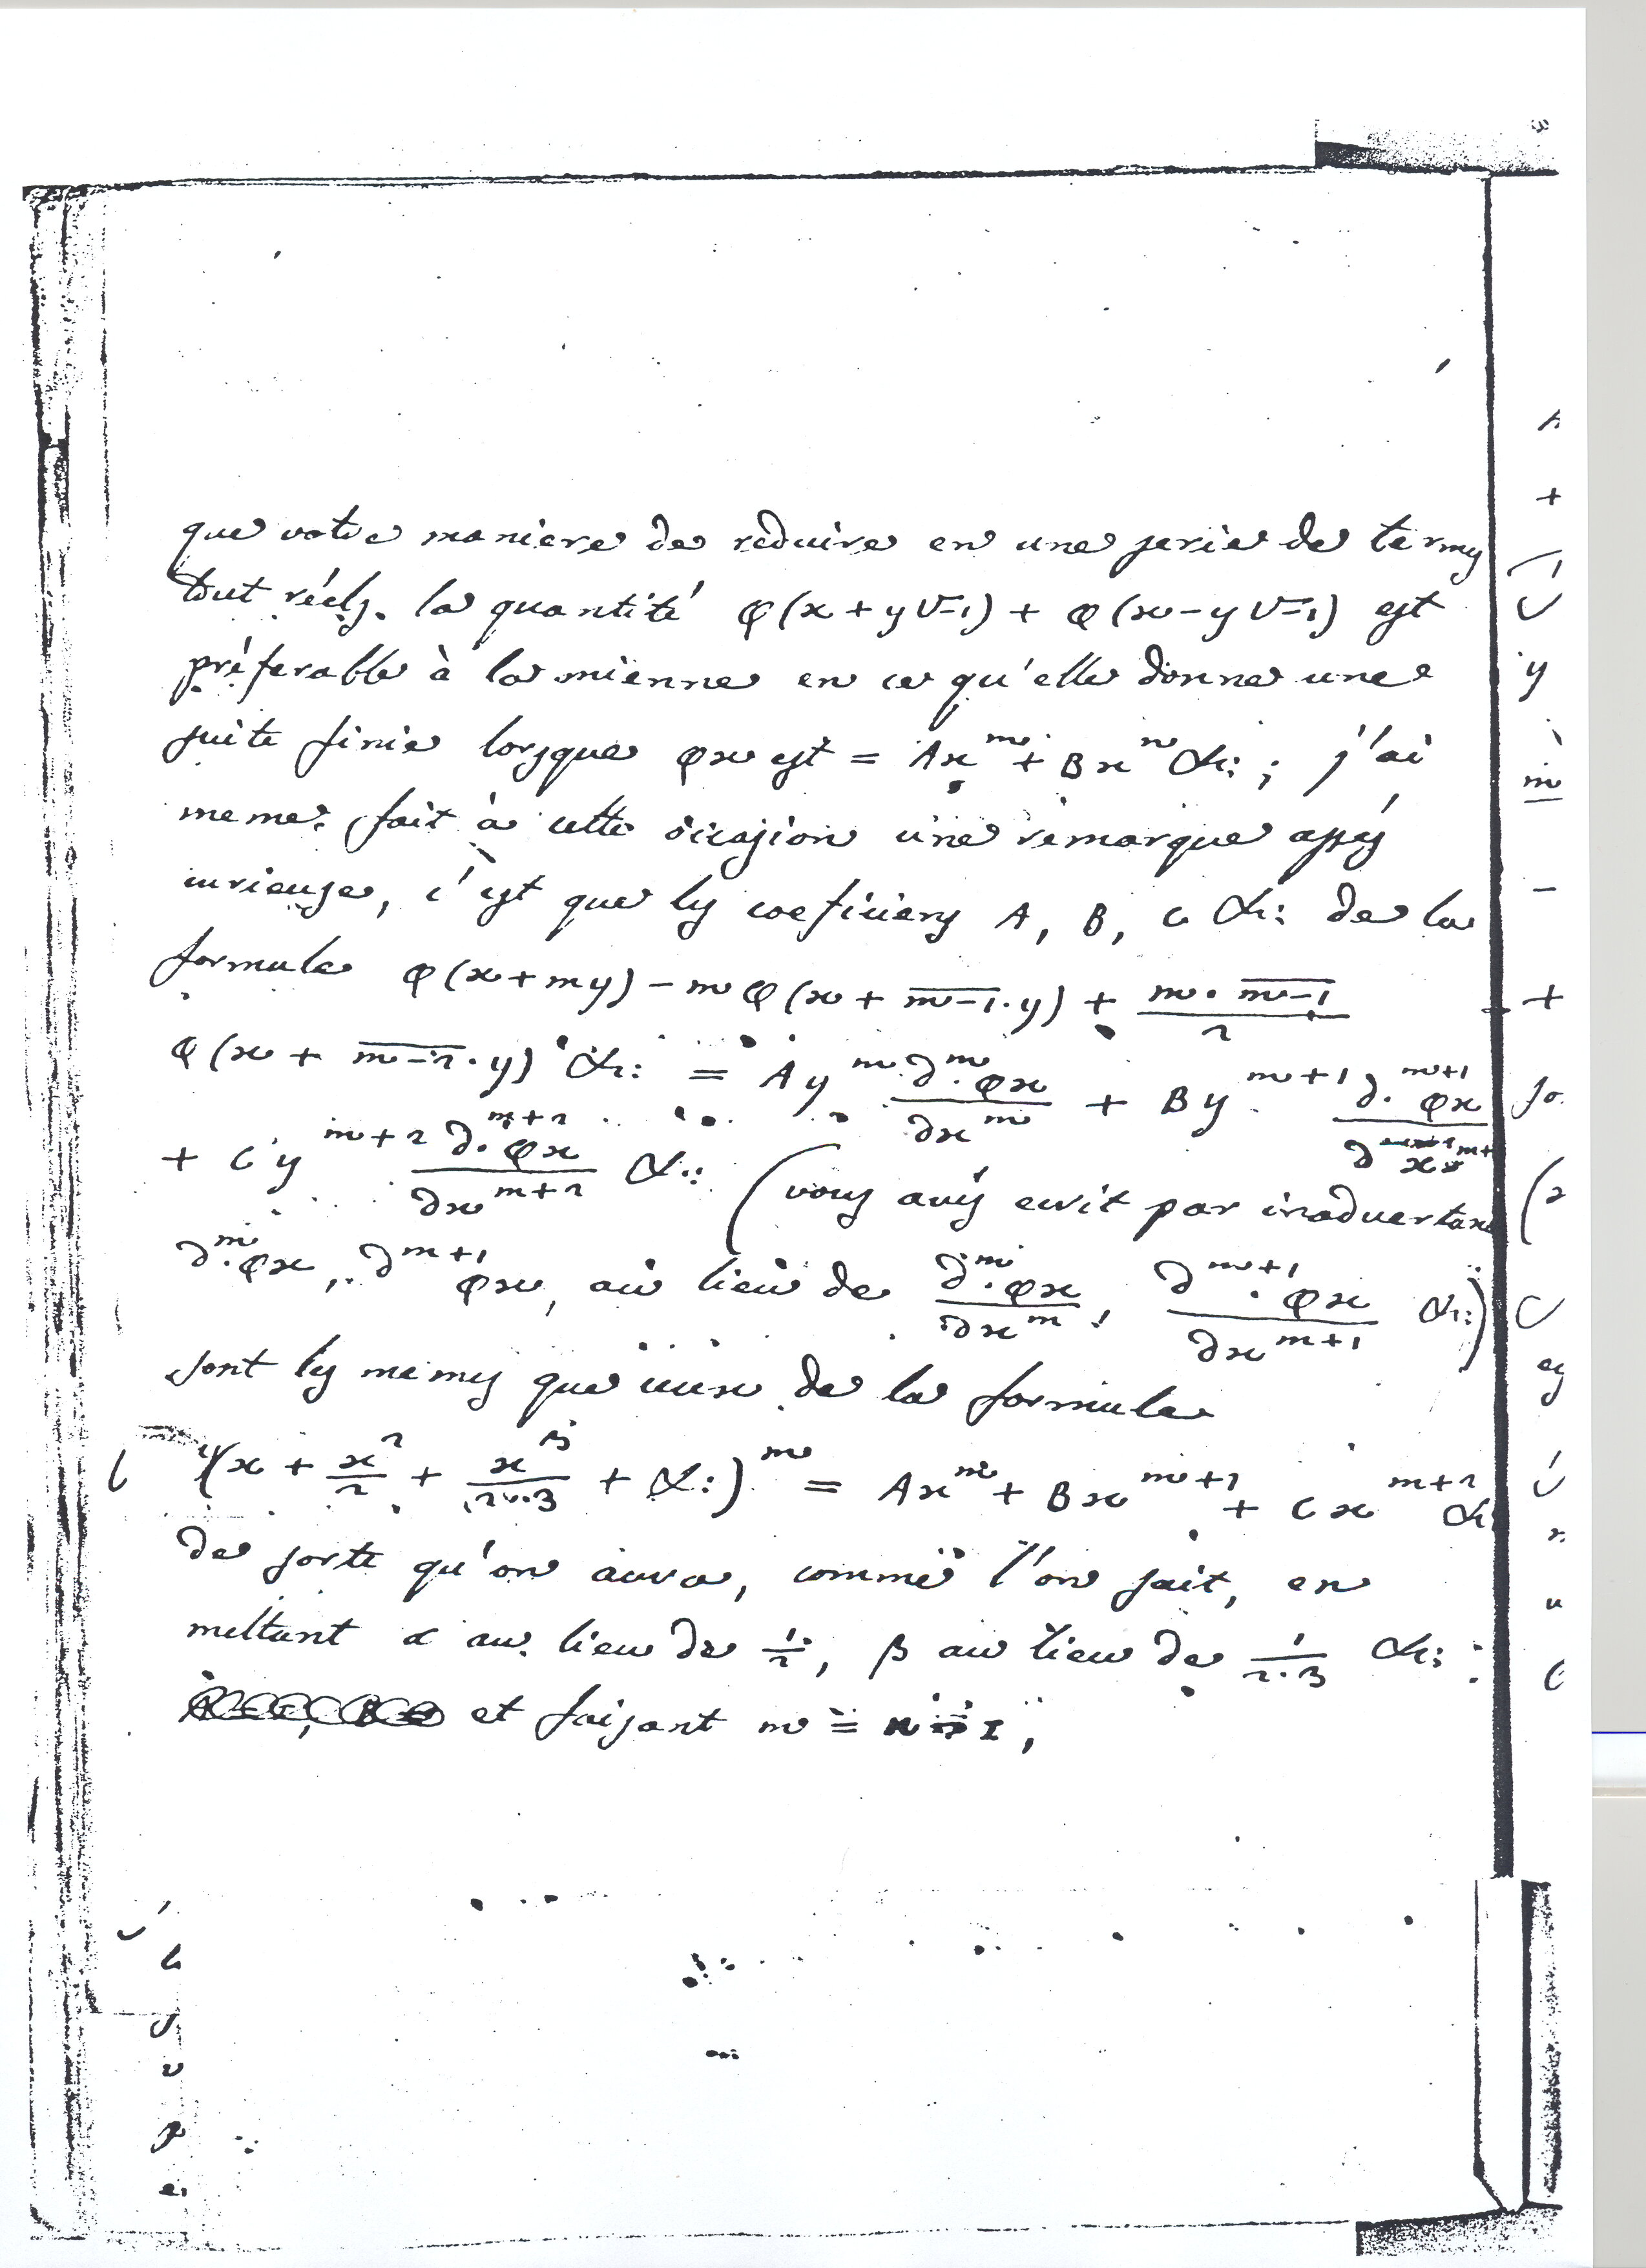 que votre maniere de reduire en une serie de termes
tout réels. la quantité φ(x+y√-1) + φ(x-y√-1) est
préferable à la mienne en ce qu'elle donne une
suite finie lorsque φx est = Ax^m + Bx^n &c: ; j'ai
meme fait à cette occasion une remarque assés
curieuse, c'est que les coeficiens A, B, C &c: de la
formule φ(x+my) - mφ(x + \overline{m-1}.y) + \frac{m. \overline{m-1}}{2}
φ(x + \overline{m-2}.y) &c: = Ay^m \frac{∂^m.φx}{∂x^m} + By^{m+1} \frac{∂^{m+1}.φx}{∂x^{m+1}}
+ Cy^{m+2} \frac{∂^{m+2}.φx}{∂x^{m+2}} &c: (vous avés ecrit par inadvertance
∂^m.φx, ∂^{m+1}φx, au lieu de \frac{∂^m.φx}{∂x^m}, \frac{∂^{m+1}.φx}{∂x^{m+1}} &c:)
sont les memes que ceux de la formule
(x + \frac{x^2}{2} + \frac{x^3}{2.3} + &c:)^m = Ax^m + Bx^{m+1} + Cx^{m+2} &c
de sorte qu'on aura, comme l'on sait, en
mettant α au lieu de \frac{1}{2}, β au lieu de \frac{1}{2.3} &c:
et faisant m =